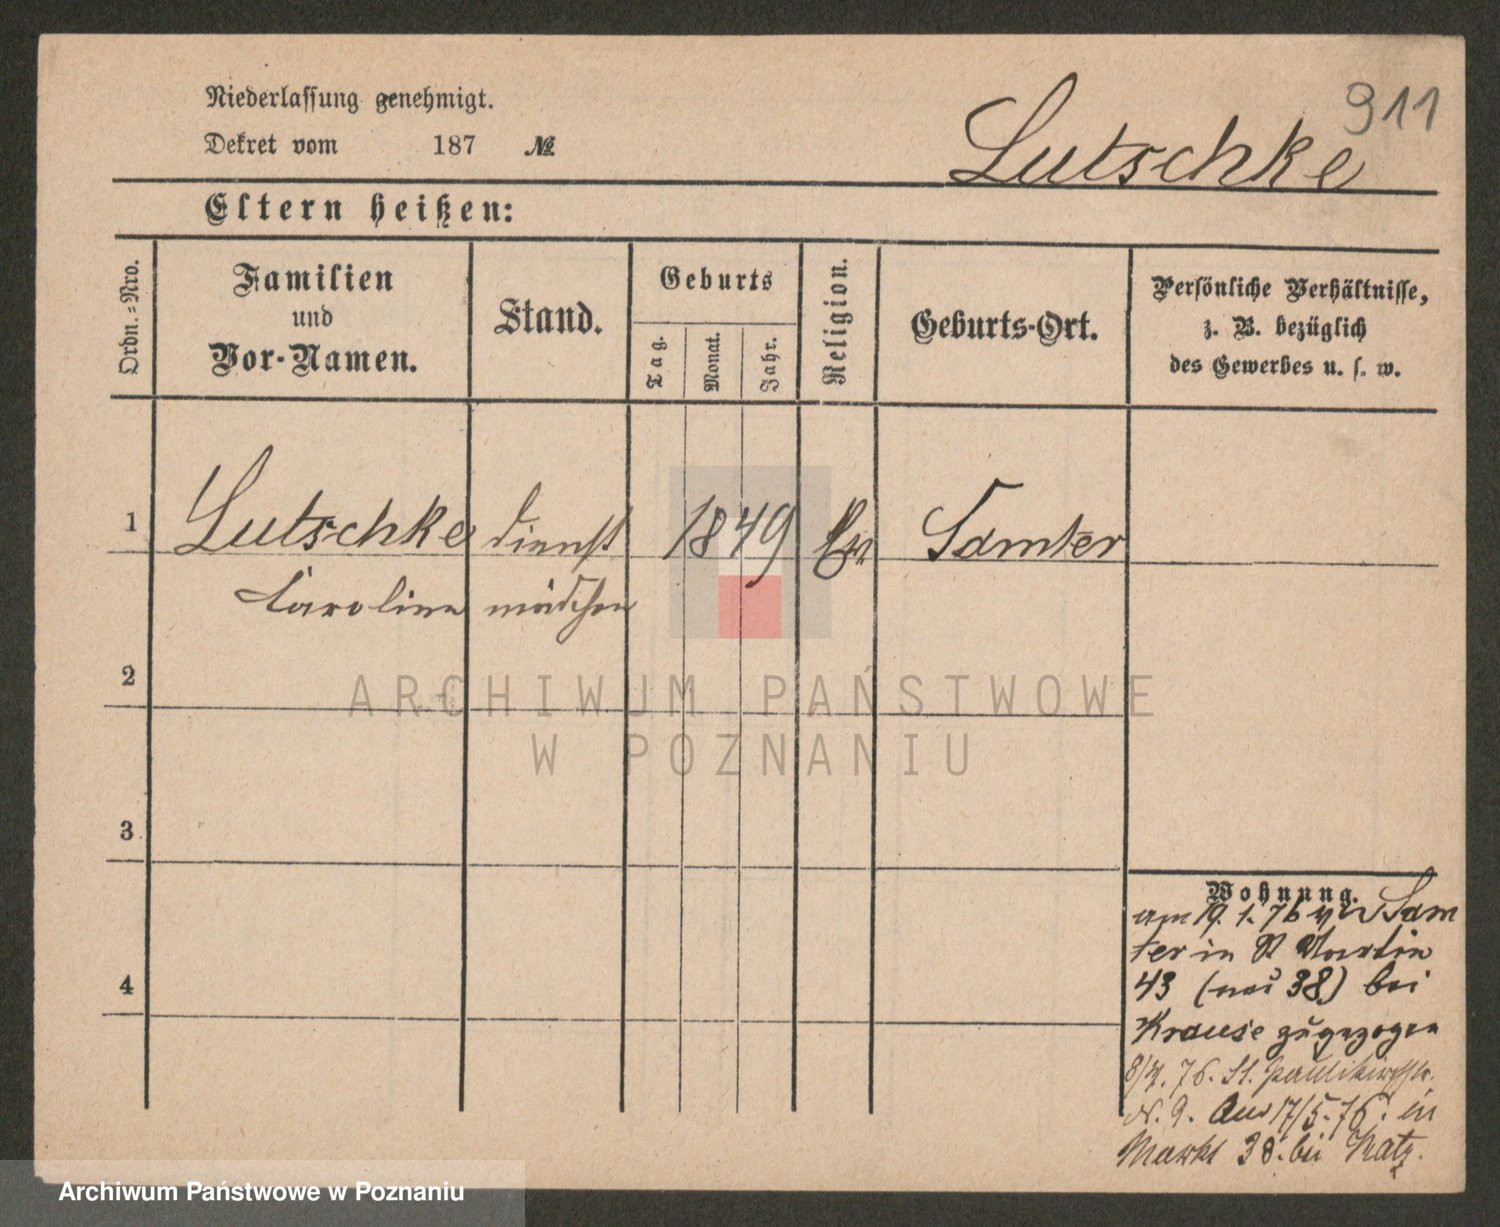 911
Niederlassung genehmigt.
Lutschke
Dekret vom 187 №
Eltern heißen:
Ordn.=Nro.
Familien
und
Vor-Namen.
Stand.
Geburts
Tag.
Monat.
Jahr.
Religion.
Geburts-Ort.
Persönliche Verhältnisse,
z. B. bezüglich
des Gewerbes u. s. w.
1 Lutschke dienst 1849 Ev Samter
Caroline mädchen
2
3
4
Wohnung.
am 19. 1. 76 v Sam
ter in St Martin
43 (neu 38) bei
Krause zugezogen
8/4. 76. St. Paulikirchstr.
N. 9. Am 17/5. 76. in
Markt 38. bei Katz.
ARCHIWUM PAŃSTWOWE
W POZNANIU
Archiwum Państwowe w Poznaniu